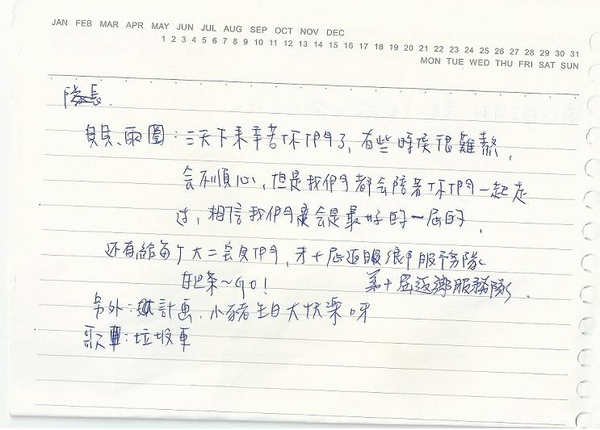 JAN FEB MAR APR MAY JUN JUL AUG SEP OCT NOV DEC
1 2 3 4 5 6 7 8 9 10 11 12 13 14 15 16 17 18 19 20 21 22 23 24 25 26 27 28 29 30 31
MON TUE WED THU FRI SAT SUN
隊長.
貝貝、雨圈:三天下來辛苦你們了,有些時候很難熬,
會不順心,但是我們都會陪著你們一起走
过,相信我們會是最好的一屆的.
还有給每个大二会員們,才十屆返服
吧条~GO!
第十屆返鄉服務隊.
另外:計画.小豬生日大快樂呀
歌單:垃圾車